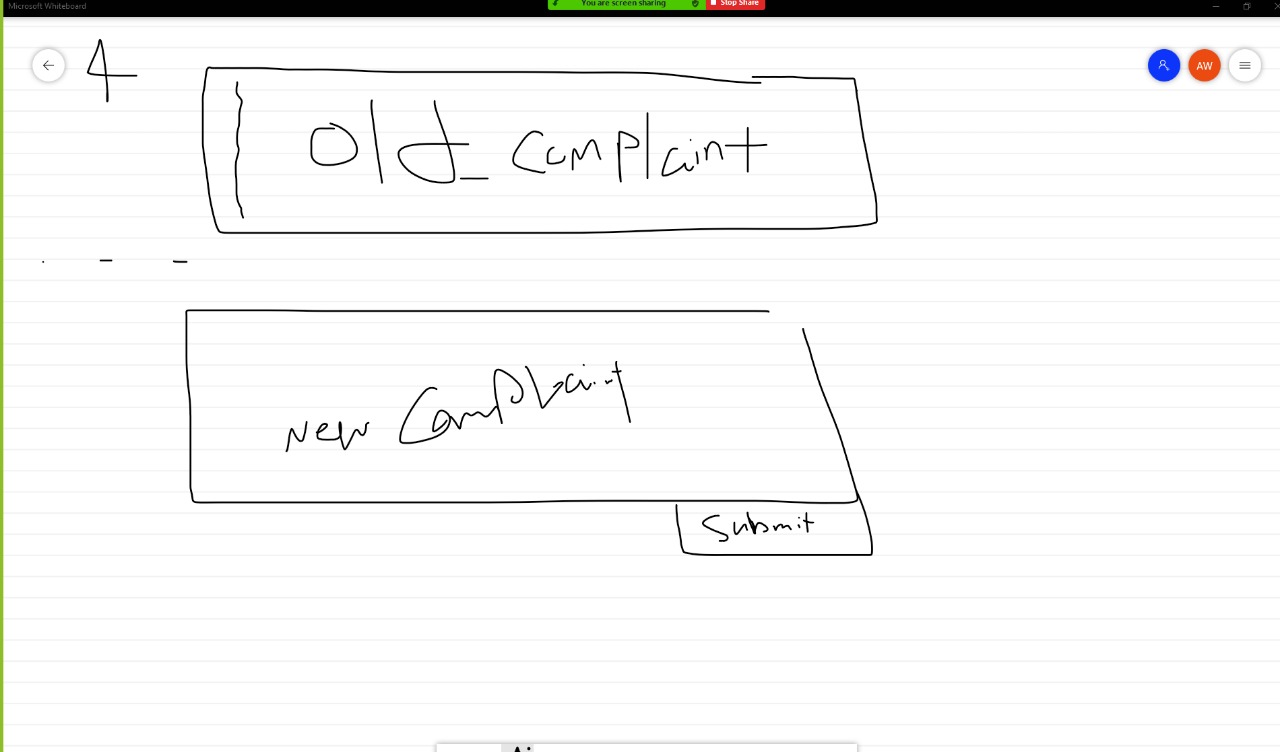 Microsoft Whiteboard
You are screen sharing
Stop Share
4
AW
Old_complaint
New Complaint
Submit